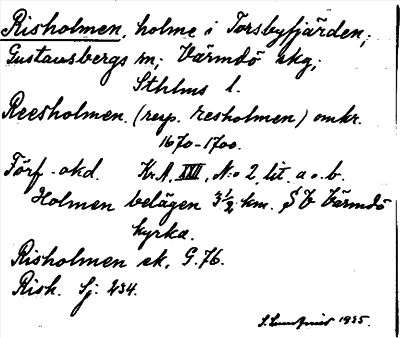 Risholmen, holme i Torsbyfjärden;
Gustavsbergs sn; Värmdö skg;
Sthlms l.
Reesholmen. (resp. resholmen) omkr.
1670-1700.
Förf. okd. Kr. A. XXII, N:o 2 lit. a o. b.
Holmen belägen 3½ km. SV Värmdö
kyrka.
Risholmen ek. G. 76.
Rish. Sj. 234.
1935.